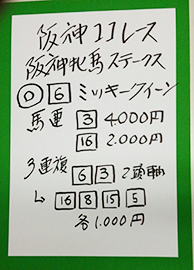 阪神11レース
阪神牝馬ステークス
◎ 6 ミッキークイーン
馬連 3 4000円
16 2.000円
3連複 6 3 2頭軸
↳ 16 8 15 5
各1.000円